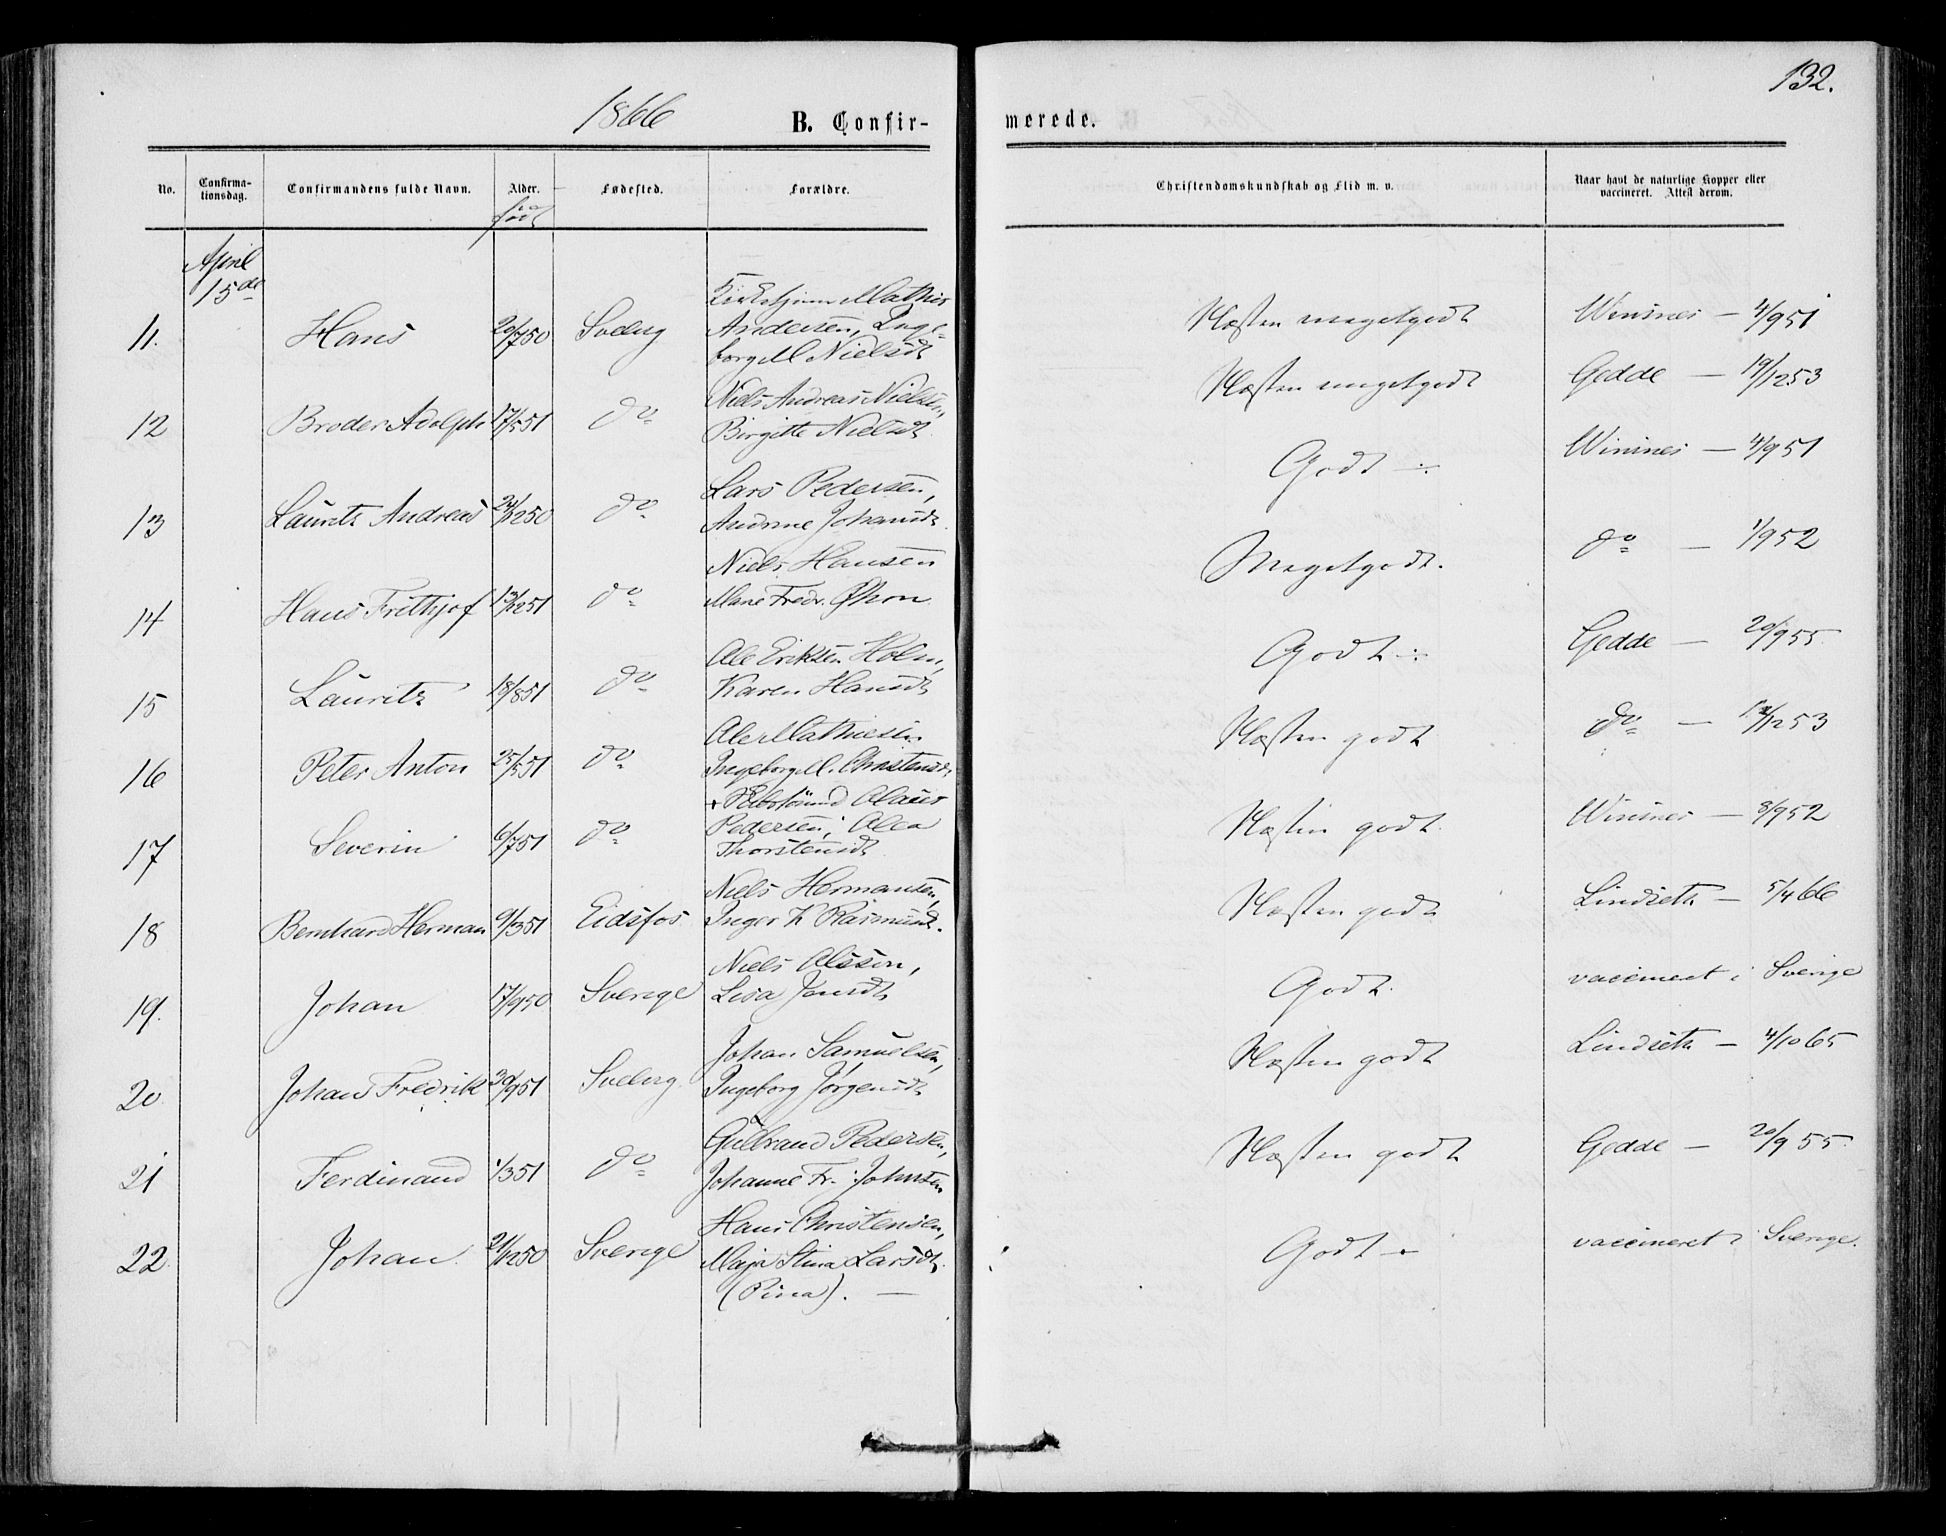 132.
1866
B. Confir-
merede.
No.
Confirma-
tionsdag.
Confirmandens fulde Navn.
Alder.
født
Fødested.
Forældre.
Christendomskundskab og Flid m. v.
Naar havt de naturlige Kopper eller
vaccineret. Attest derom.
April
15de
11. Hans 20/7 50 Svelvig
Mathis
Andersen, Inge-
borg M Nielsdt
Næsten megetgodt Winsnes — 4/9 51
12 Broder Adolph 17/5 51 do
Niels Andreas Nielsen,
Birgitte Nielsdt.
Næsten megetgodt Gedde — 19/12 53
13 Lauritz Andreas 24/12 50 do
Lars Pedersen,
Andrine Johansdt.
Godt ÷ Winsnes — 4/9 51
14 Hans Frithjof 13/12 51 do
Niels Hansen
Marie Fredr. Øhrn
Megetgodt. do — 1/9 52
15 Lauritz 18/8 51 do
Ole Eriksen Holm,
Karen Hansdt
Godt ÷ Gedde — 20/9 55
16 Peter Anton 25/5 51 do
Ole Mathiesen
Ingeborg M. Christensdt
Næsten godt do — 12/12 53
17 Severin 6/7 51 do
Olaus
Pedersen, Olea
Thorstensdt
Næsten godt. Winsnes — 8/9 52
18 Bernhard Herman 9/3 51 Eidsfos
Niels Hermansen,
Inger K Rasmusdt.
Næsten godt Lindseth — 5/4 66
19. Johan 17/9 50 Sverige
Niels Olsson,
Lisa Jansdt
Godt. vaccineret i Sverige
20 Johan Fredrik 30/9 51 Svelvig
Johan Samuelsen,
Ingeborg Jørgensdt
Næsten godt Lindseth — 4/10 65
21 Ferdinand 1/3 51 do
Gulbrand Pedersen,
Johanne Fr. Johnsen
Næsten godt Gedde — 20/9 55
22 Johan 21/12 50 Sverige
Hans Christensen,
Maja Stina Larsdt.
(Pina). —
Godt ÷ vaccineret i Sverige.